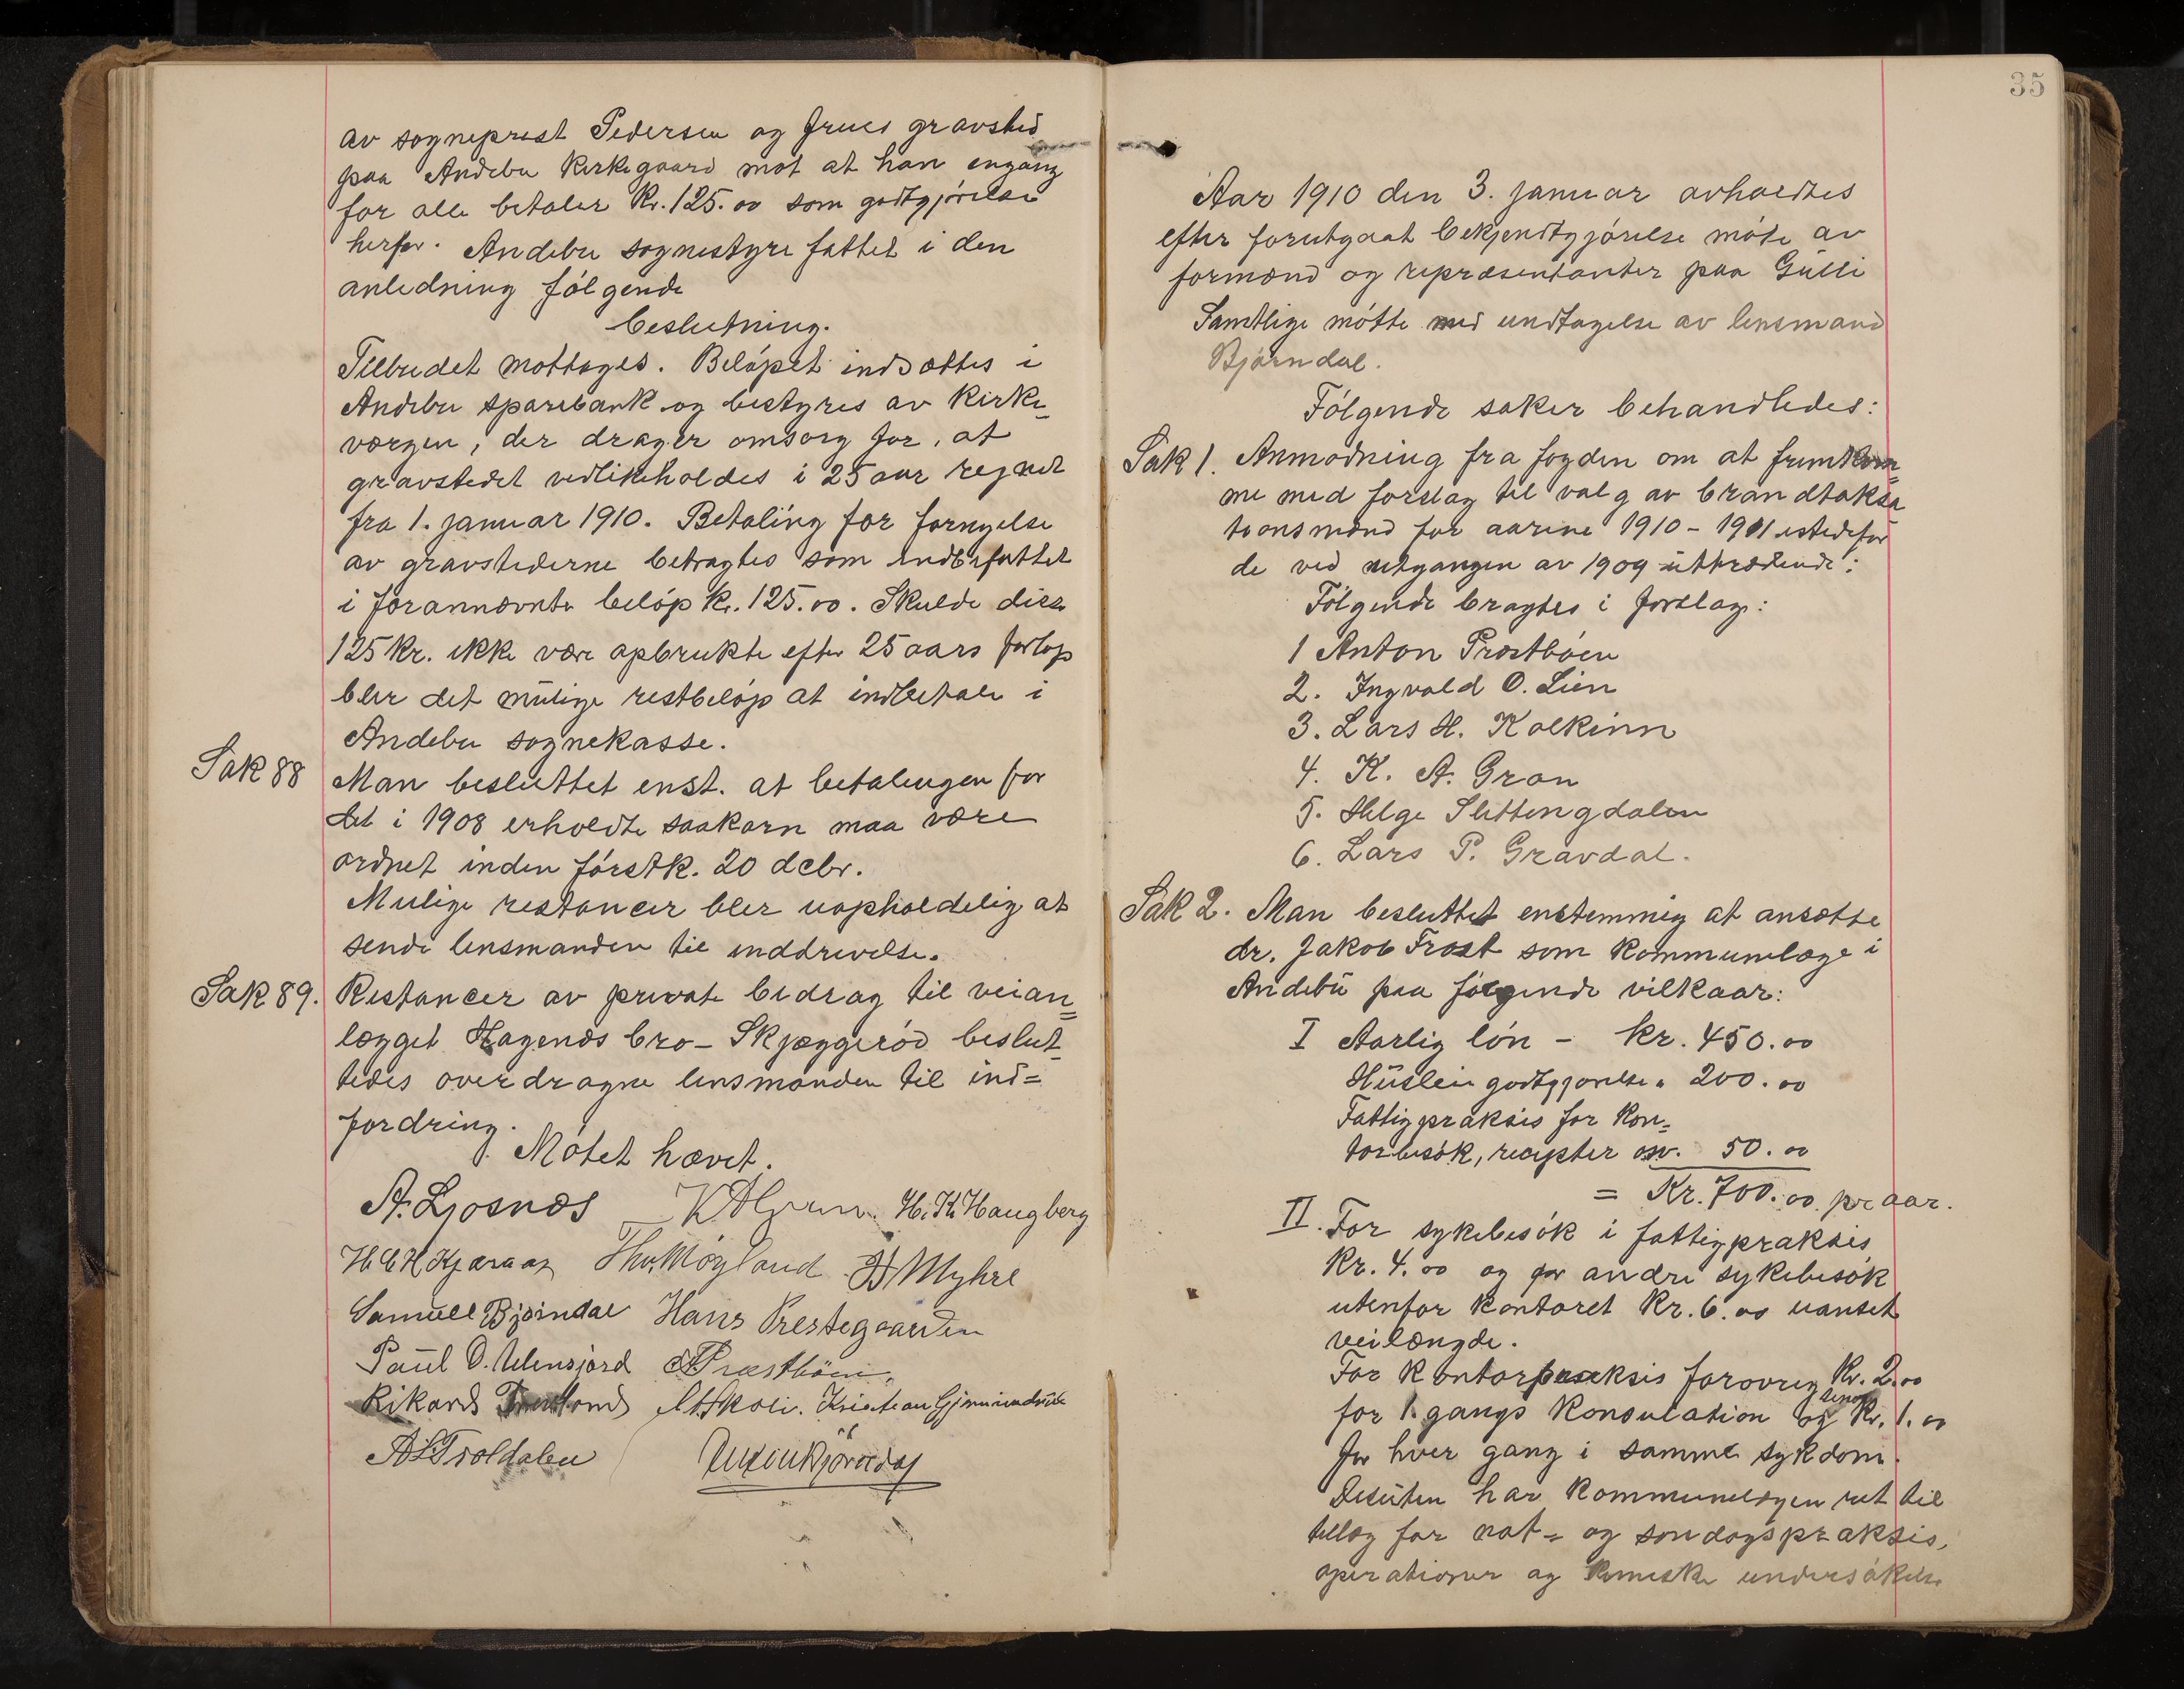 av sogneprest Pedersen og frues gravsted
paa Andebu Kirkegaard mot at han engang
for alle betaler Kr. 125.00 som godtgjørelse
herfor. Andebu sognestyre fattet i den
anledning følgende
beslutning.
Tilbudet mottages. Beløpet indsættes i
Andebu sparebank og bestyres av Kirke-
værgen, der drager omsorg for, at
gravstedet vedlikeholdes i 25 aar regnet
fra 1. januar 1910. Betaling for fornyelse
av gravstederne betragtes som indbefattet
i forannævnte beløp kr. 125.00. Skulde disse
125 Kr. ikke være opbrukte efter 25 aars forløp
blir det mulige restbeløp at indbetale i
Andebu sognekasse.
Sak 88 Man besluttet enst. at betalingen for
det i 1908 erholdte saakorn maa være
ordnet inden førstk. 20 debr.
Mulige restancer blir uopholdelig at
sende lensmanden til inddrivelse.
Sak 89. Restancer av private bidrag til veian=
lægget Hagenæs bro - Skjæggerød beslut-
tedes overdragne lensmanden til ind=
fordring.
Møtet hævet.
A. Ljosnæs K A Gran H. K. Haugberg
H E H Kjæraas Thv. Møyland H Myhre
Samuel Bjørndal Hans Prestegaarden
Paul O. Ulensjord A Præstbøen
Rikard A. Skoli. Kristean
A L Troldalen
35
Aar 1910 den 3. januar avholdtes
efter forutgaat bekjendtgjørelse møte av
formænd og repræsentanter paa Gulli
Samtlige møtte med undtagelse av lensmand
Bjørndal.
Følgende saker behandledes:
Sak 1. Anmodning fra fogden om at fremkom=
me med forslag til valg av brandtaksa-
tionsmænd for aarene 1910 - 1911 istedefor
de ved utgangen av 1909 uttrædende:
Følgende bragtes i forslag:
1 Anton Præstbøen
2. Ingvald O. Lien
3. Lars H. Kolkinn
4. K. A. Gran
5. Helge Slettingdalen
6. Lars P. Gravdal.
Sak 2. Man besluttet enstemmig at ansætte
dr. Jakob Frost som Kommunelæge i
Andebu paa følgende vilkaar:
I Aarlig løn - kr. 450.00
Husleiegodtgjørelse " 200.00
Fattigpraksis for kon=
torbesøk, recepter osv. 50.00
= Kr. 700.00 pr aar.
II. For sykebesøk i fattigpraksis
Kr. 4.00 og for andre sykebesøk
utenfor kontoret Kr. 6.00 uanset
veilængde.
For Kontorpraksis forøvrig Kr. 2.00
for 1. gangs Konsulation og senere Kr. 1.00
for hver gang i samme sykdom.
Desuten har Kommunelægen ret til
tillæg for nat= og søndagspraksis,
operationer og kemiske undersøkelse